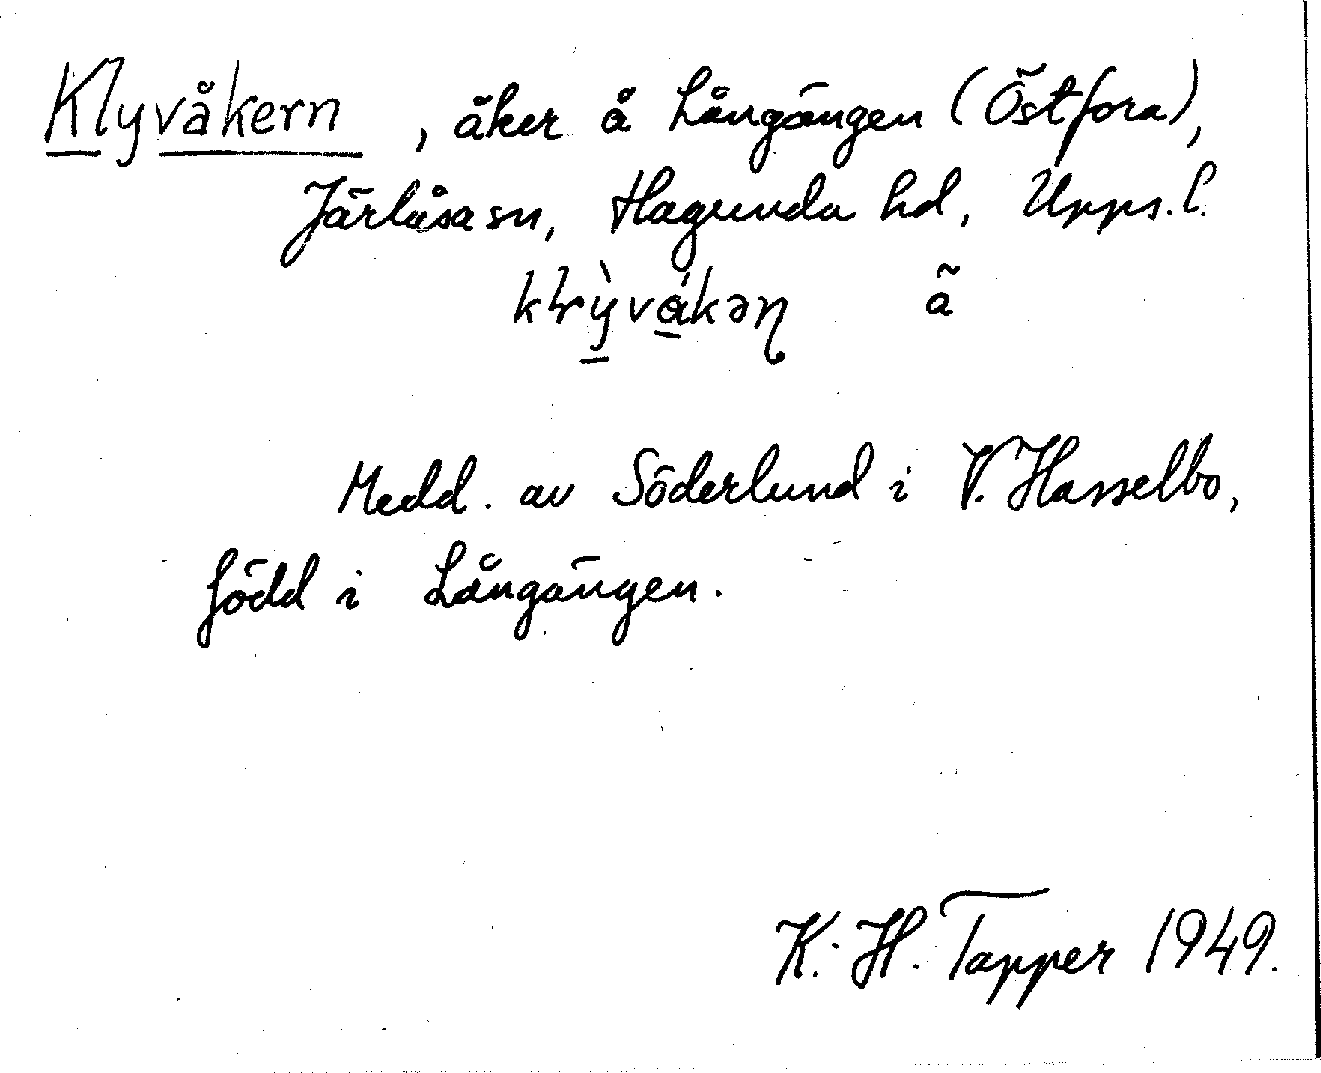 Klyvåkern, åker å Långängen (Östfora),
Järlåsa sn, Hagunda hd, Upps. l.
å
Medd. av Söderlund i V. Hasselbo,
född i Långängen.
K. H. Tapper 1949.